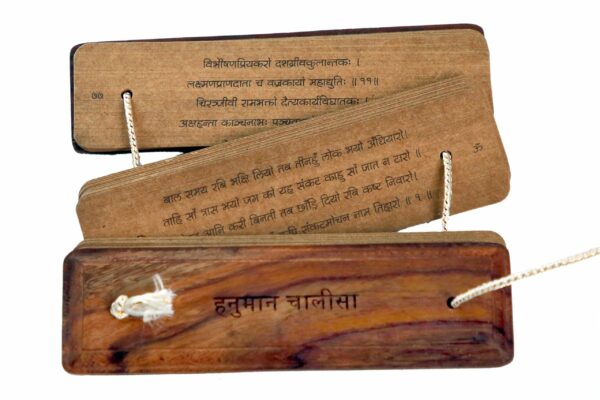 विभीषणप्रियकरो दशग्रीवकुलान्तकः ।
लक्ष्मणप्राणदाता च वज्रकायो महाद्युतिः ॥ ११॥
चिरञ्जीवी रामभक्तो दैत्यकार्यविघातकः ।
अक्षहन्ता काञ्चनाभः
ॐ
बाल समय रबि भक्षि लियो तब तीनहुँ लोक भयो अँधियारो।
ताहि सों त्रास भयो जग को यह संकट काहु सों जात न टारो ॥
आनि करी बिनती तब छाँड़ि दियो रबि कष्ट निवारो।
संकटमोचन नाम तिहारो ॥ १ ॥
हनुमान चालीसा